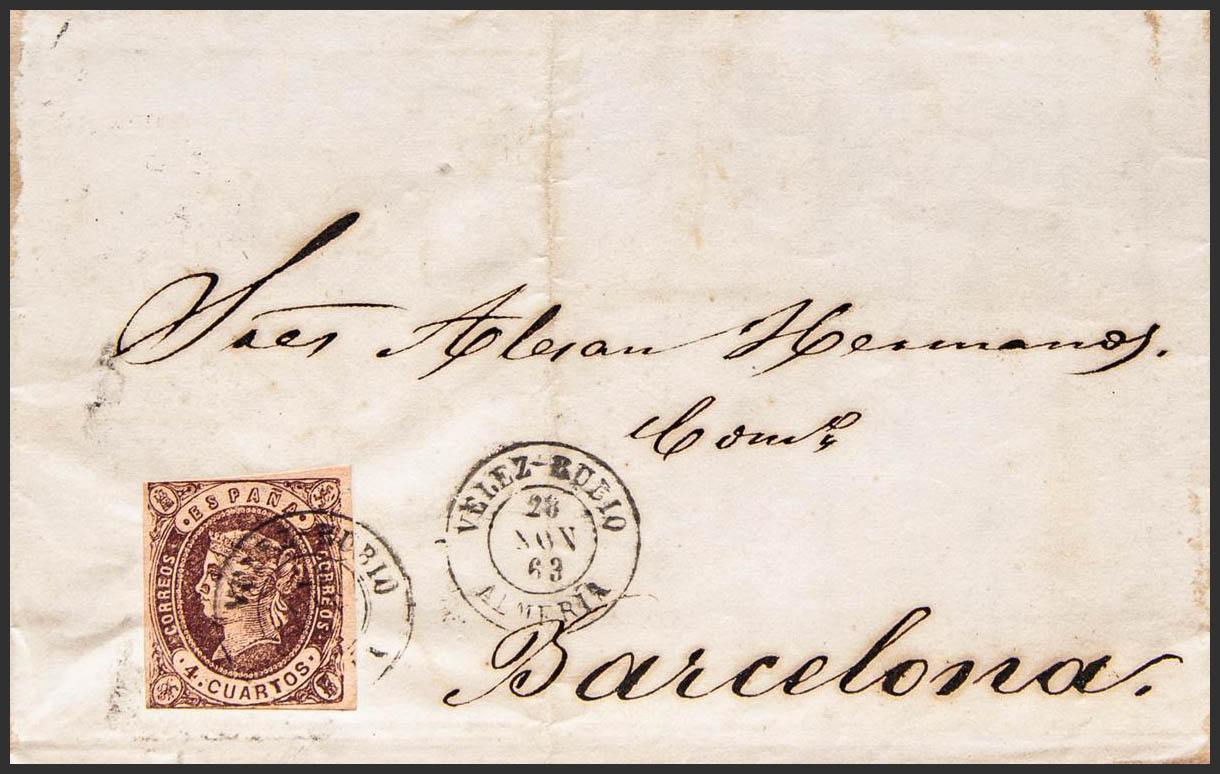 Sres Alesan Hermanos.
Barcelona.
VELEZ-RUBIO
28
NOV
63
ALMERIA
ESPAÑA
CORREOS
CORREOS
4 CUARTOS
RUBIO